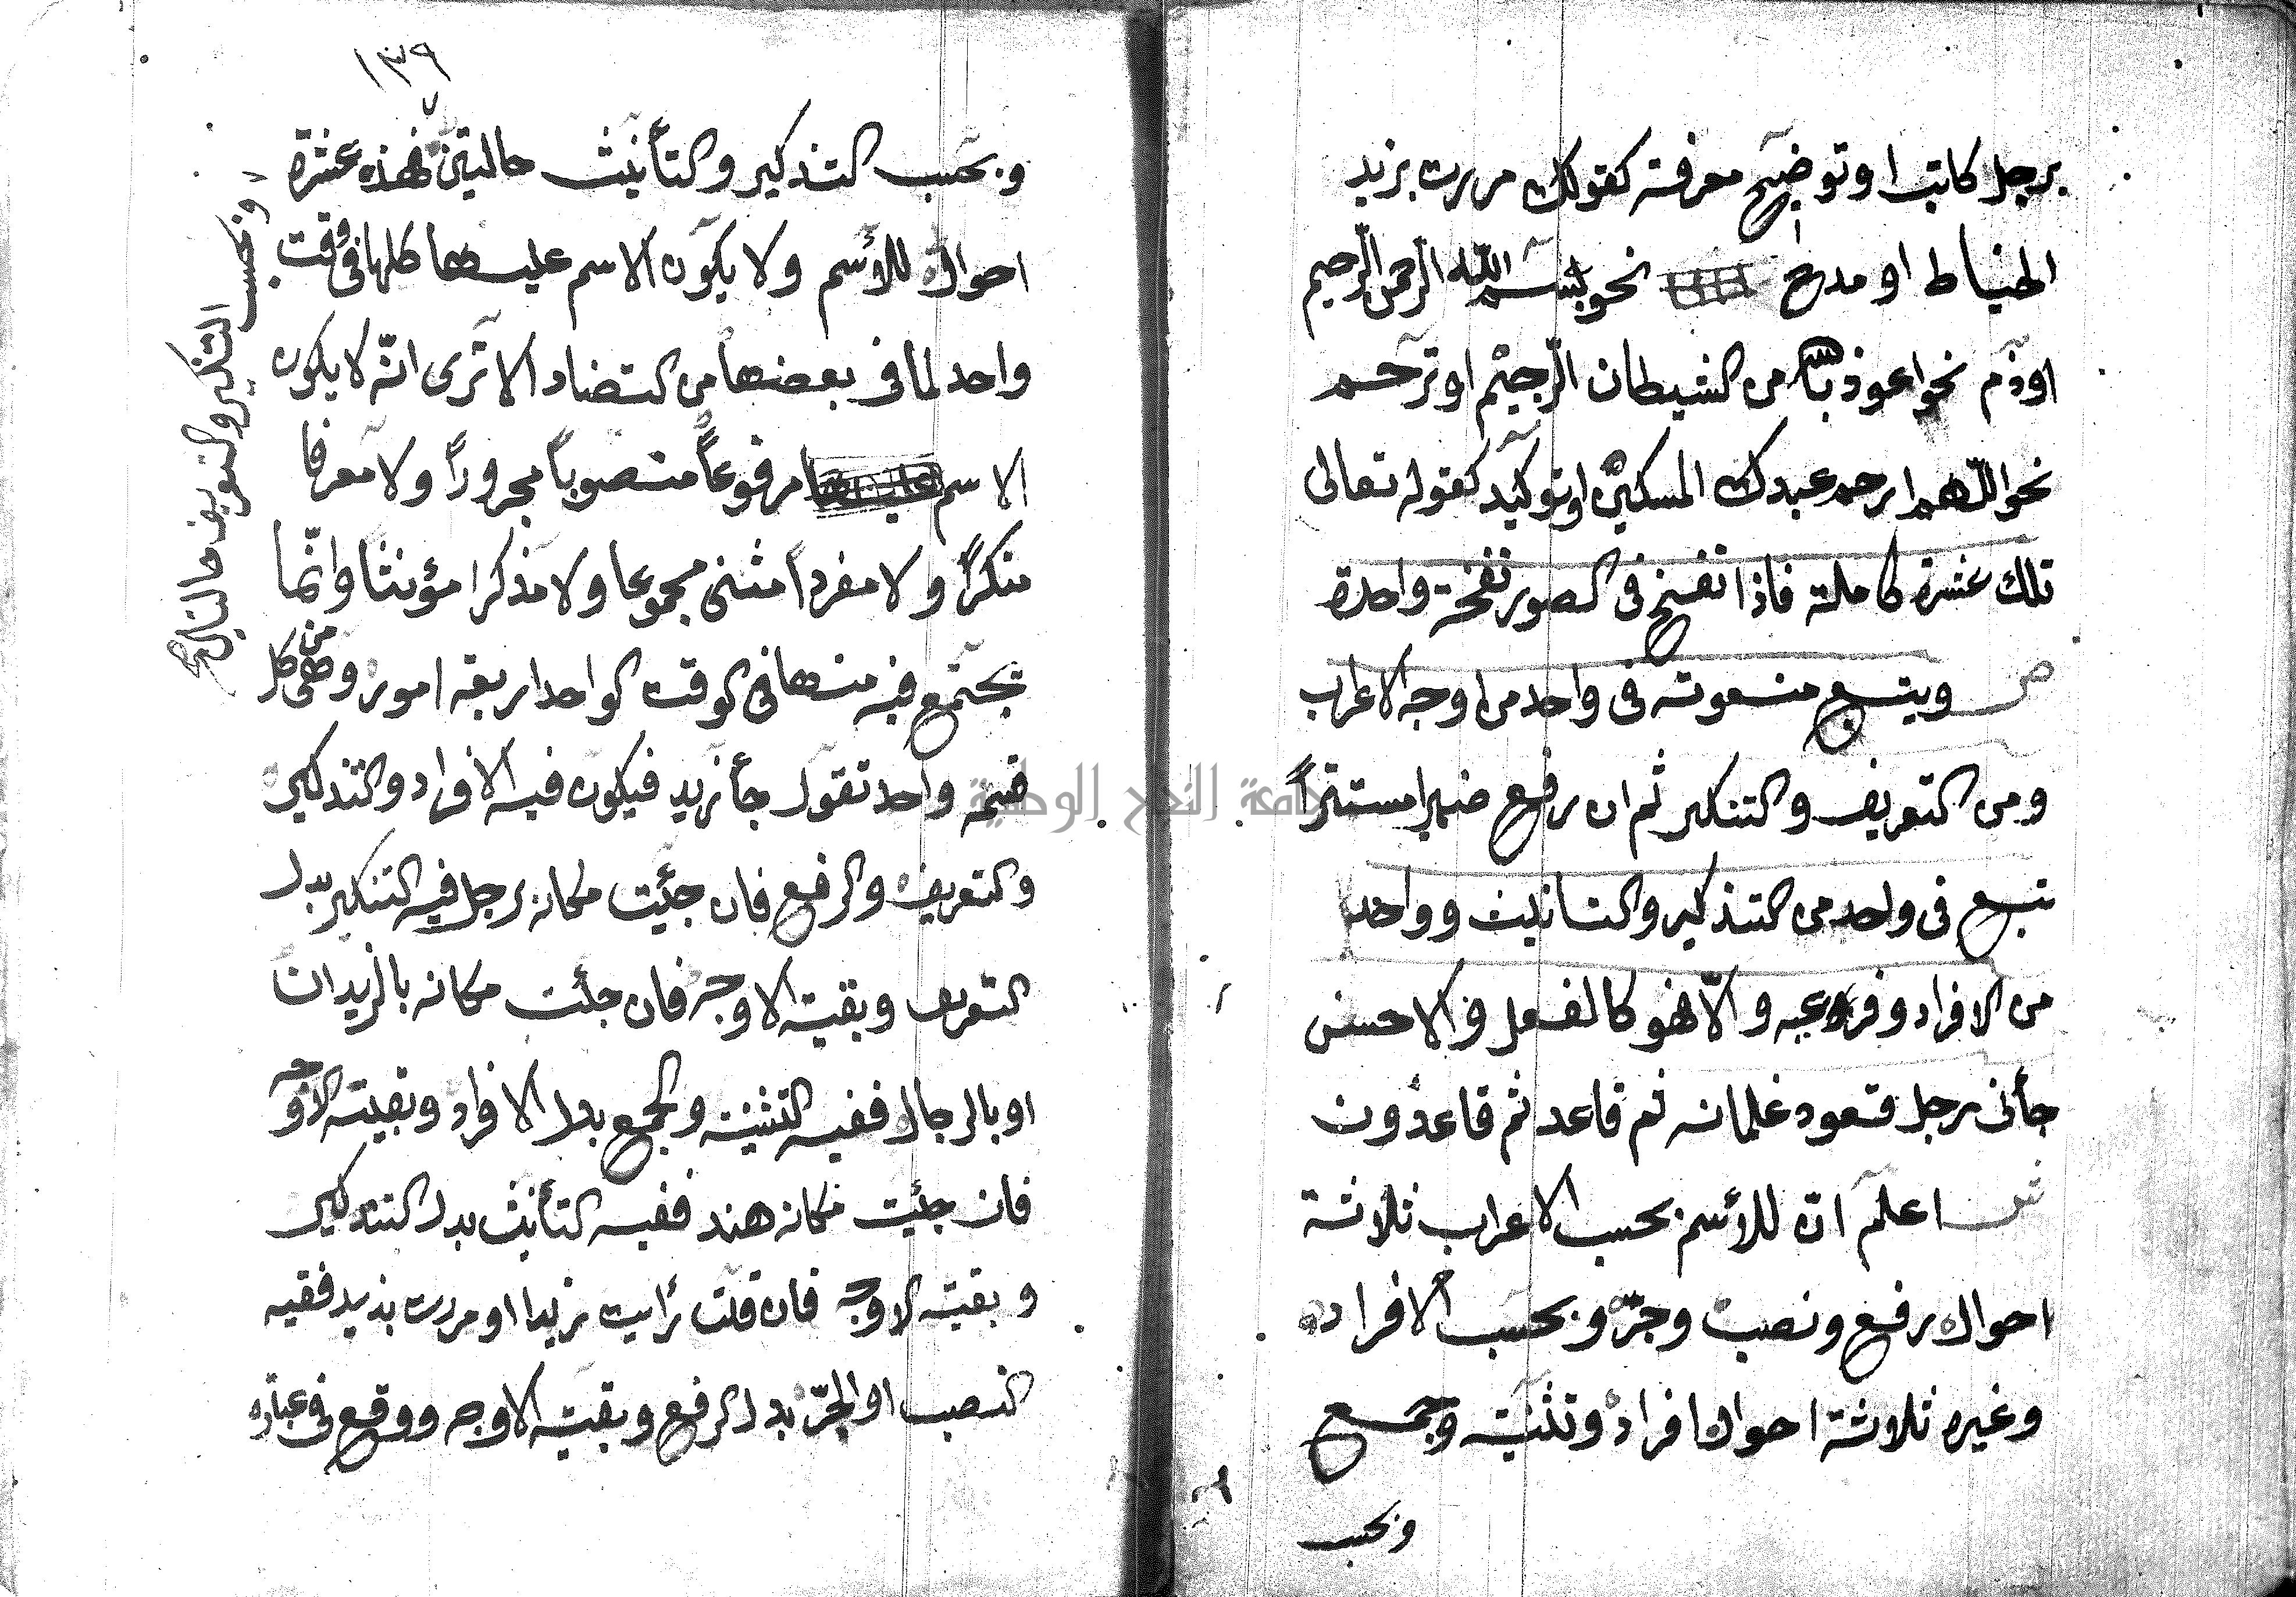 برجل كاتب او توضيح معرفة كقولك مررت بزيد
الخياط او مدح نحو بسم الله الرحمن الرحيم
او ذم نحو اعوذ بالله من الشيطان الرجيم او ترحم
نحو اللهم ارحم عبدك المسكين او توكيد كقوله تعالى
تلك عشرة كاملة فاذا نفخ في الصور نفخة واحدة
ص ويتبع منعوته في واحد من اوجه الاعراب
ومن التعريف والتنكير ثم ان رفع ضميرا مستتراً
تبع في واحد من التذكير والتانيث وواحد
من الافراد وفروعيه والّا فهو كالفعل والاحسن
جأنى رجل قعود غلمانه ثم قاعد ثم قاعدون
ش اعلم انّ للأسم بحسب الاعراب ثلاثة
احوال رفع ونصب وجرّ وبحسب الافراد
وغيره ثلاثة احوال افراد وتثنية وجمع
وبحسب
١٣٩
وبحسب التذكير والتأنيث حالتين فهذه عشرة
احوال للأسم ولا يكون الاسم عليها كلها في وقت
واحد لما في بعضها من التضاد الا ترى انّه لا يكون
الاسم مرفوعاً منصوباً مجروراً ولا معرفا
منكراً ولا مفرداً مثنى مجموعا ولا مذكرا مؤنثا وانّما
يجتمع فيه منها في الوقت الواحد اربعة امور وهي من كل
قسم واحد تقول جأ زيد فيكون فيه الافراد والتذكير
والتعريف والرفع فان جئت مكانه برجل فيه التنكير بدل
التعريف وبقية الاوجه فان جئت مكانه بالزيدان
او بالرجال ففيه التثنية والجمع بدل الافراد وبقية الاوجه
فان جئت مكانه هند ففيه التأنيث بدل التذكير
وبقية الاوجه فان قلت رأيت زيدا او مررت بزيد ففيه
النصب او الجرّ بدل الرفع وبقية الاوجه ووقع في عباره
وبحسب التنكير والتعريف حالتان صح
جامعة النجاح الوطنية